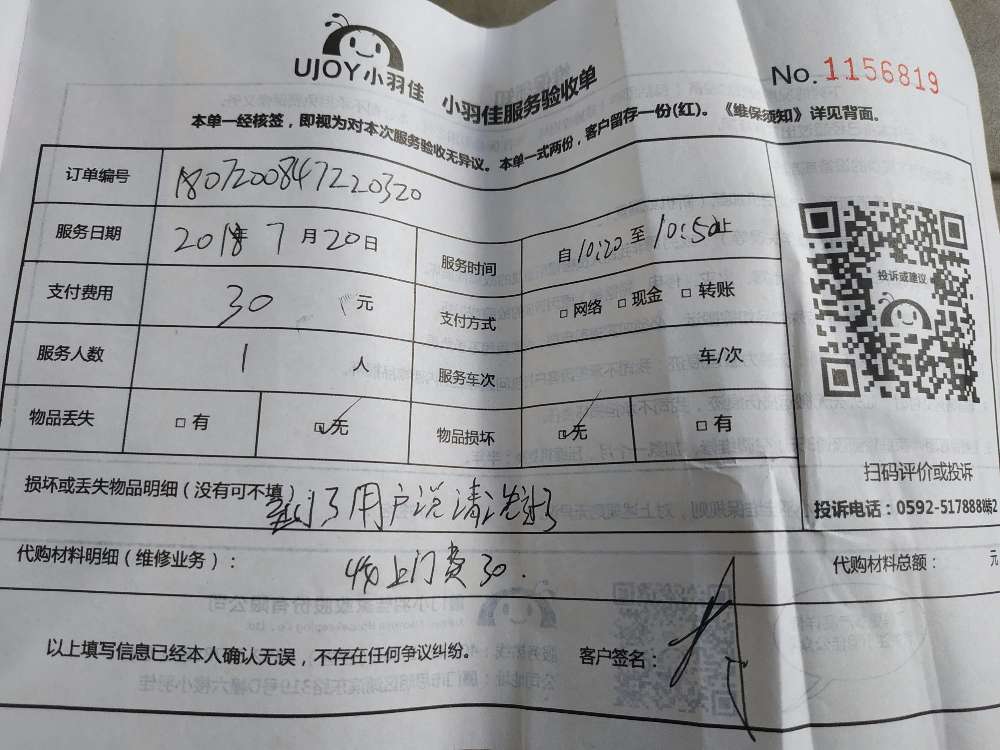 UJOY小羽佳 小羽佳服务验收单
No. 1156819
本单一经核签，即视为对本次服务验收无异议。本单一式两份，客户留存一份(红)。《维保须知》详见背面。
订单编号 1807200847220320
服务日期 2018年7月20日 服务时间 自10:20至10:50止
支付费用 30 元 支付方式 □网络 □现金 □转账
服务人数 1 人 服务车次 车/次
物品丢失 □有 □无 物品损坏 □无 □有
投诉或建议
扫码评价或投诉
投诉电话：0592-5178888转2
损坏或丢失物品明细（没有可不填）
到了用户说清洗好了
代购材料明细（维修业务）： 收上门费30. 代购材料总额： 元
以上填写信息已经本人确认无误，不存在任何争议纠纷。 客户签名：